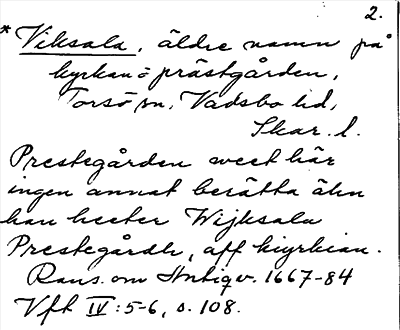 2.
*Viksala, äldre namn på
kyrkan o prästgården,
Torsö sn, Vadsbo hd,
Skar. l.
Prestegården weet här
ingen annat berätta ähn
han heeter Wijksala
Prestegårdh, aff kiyrkian.
Rans. om Antiqv. 1667-84
Vft IV:5-6, s. 108.